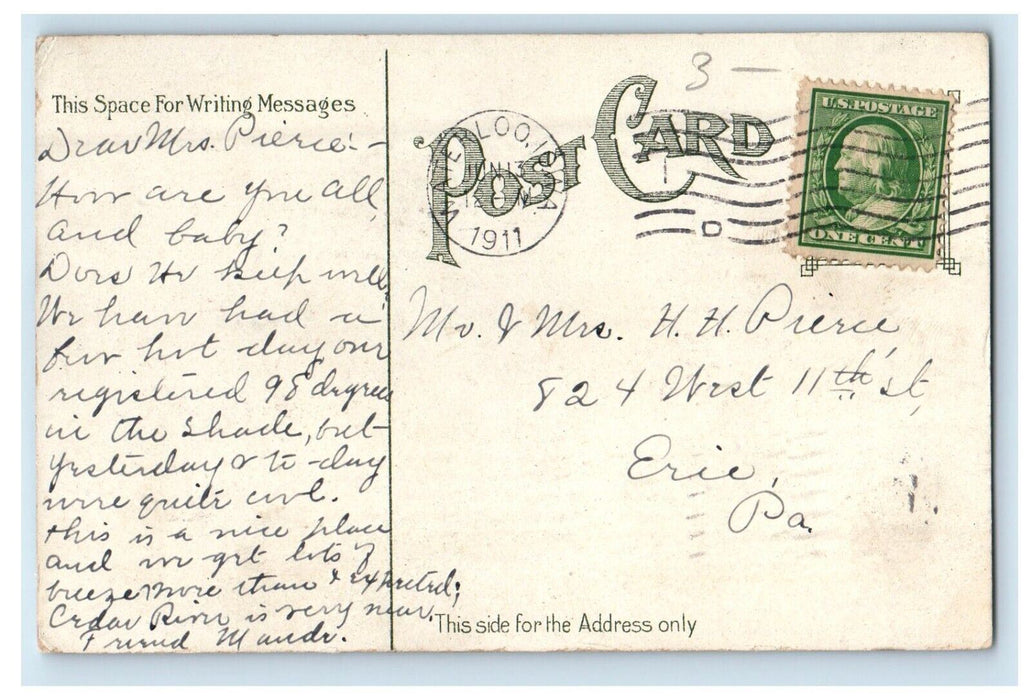 This Space For Writing Messages
Dear Mrs. Pierce:-
How are you all
and baby?
Does He keep well
We have had a
few hot days one
registered 98 degrees
in the shade, but
yesterday & to-day
were quite cool.
this is a nice place
and we get lots of
breeze more than I expected;
Cedar River is very near.
Friend Maude.
POST CARD
3 —
WATERLOO, IOWA
JUN 13
1911
D
U.S. POSTAGE
ONE CENT
Mr. & Mrs. H. H. Pierce,
824 West 11th st,
Erie,
Pa.
This side for the Address only